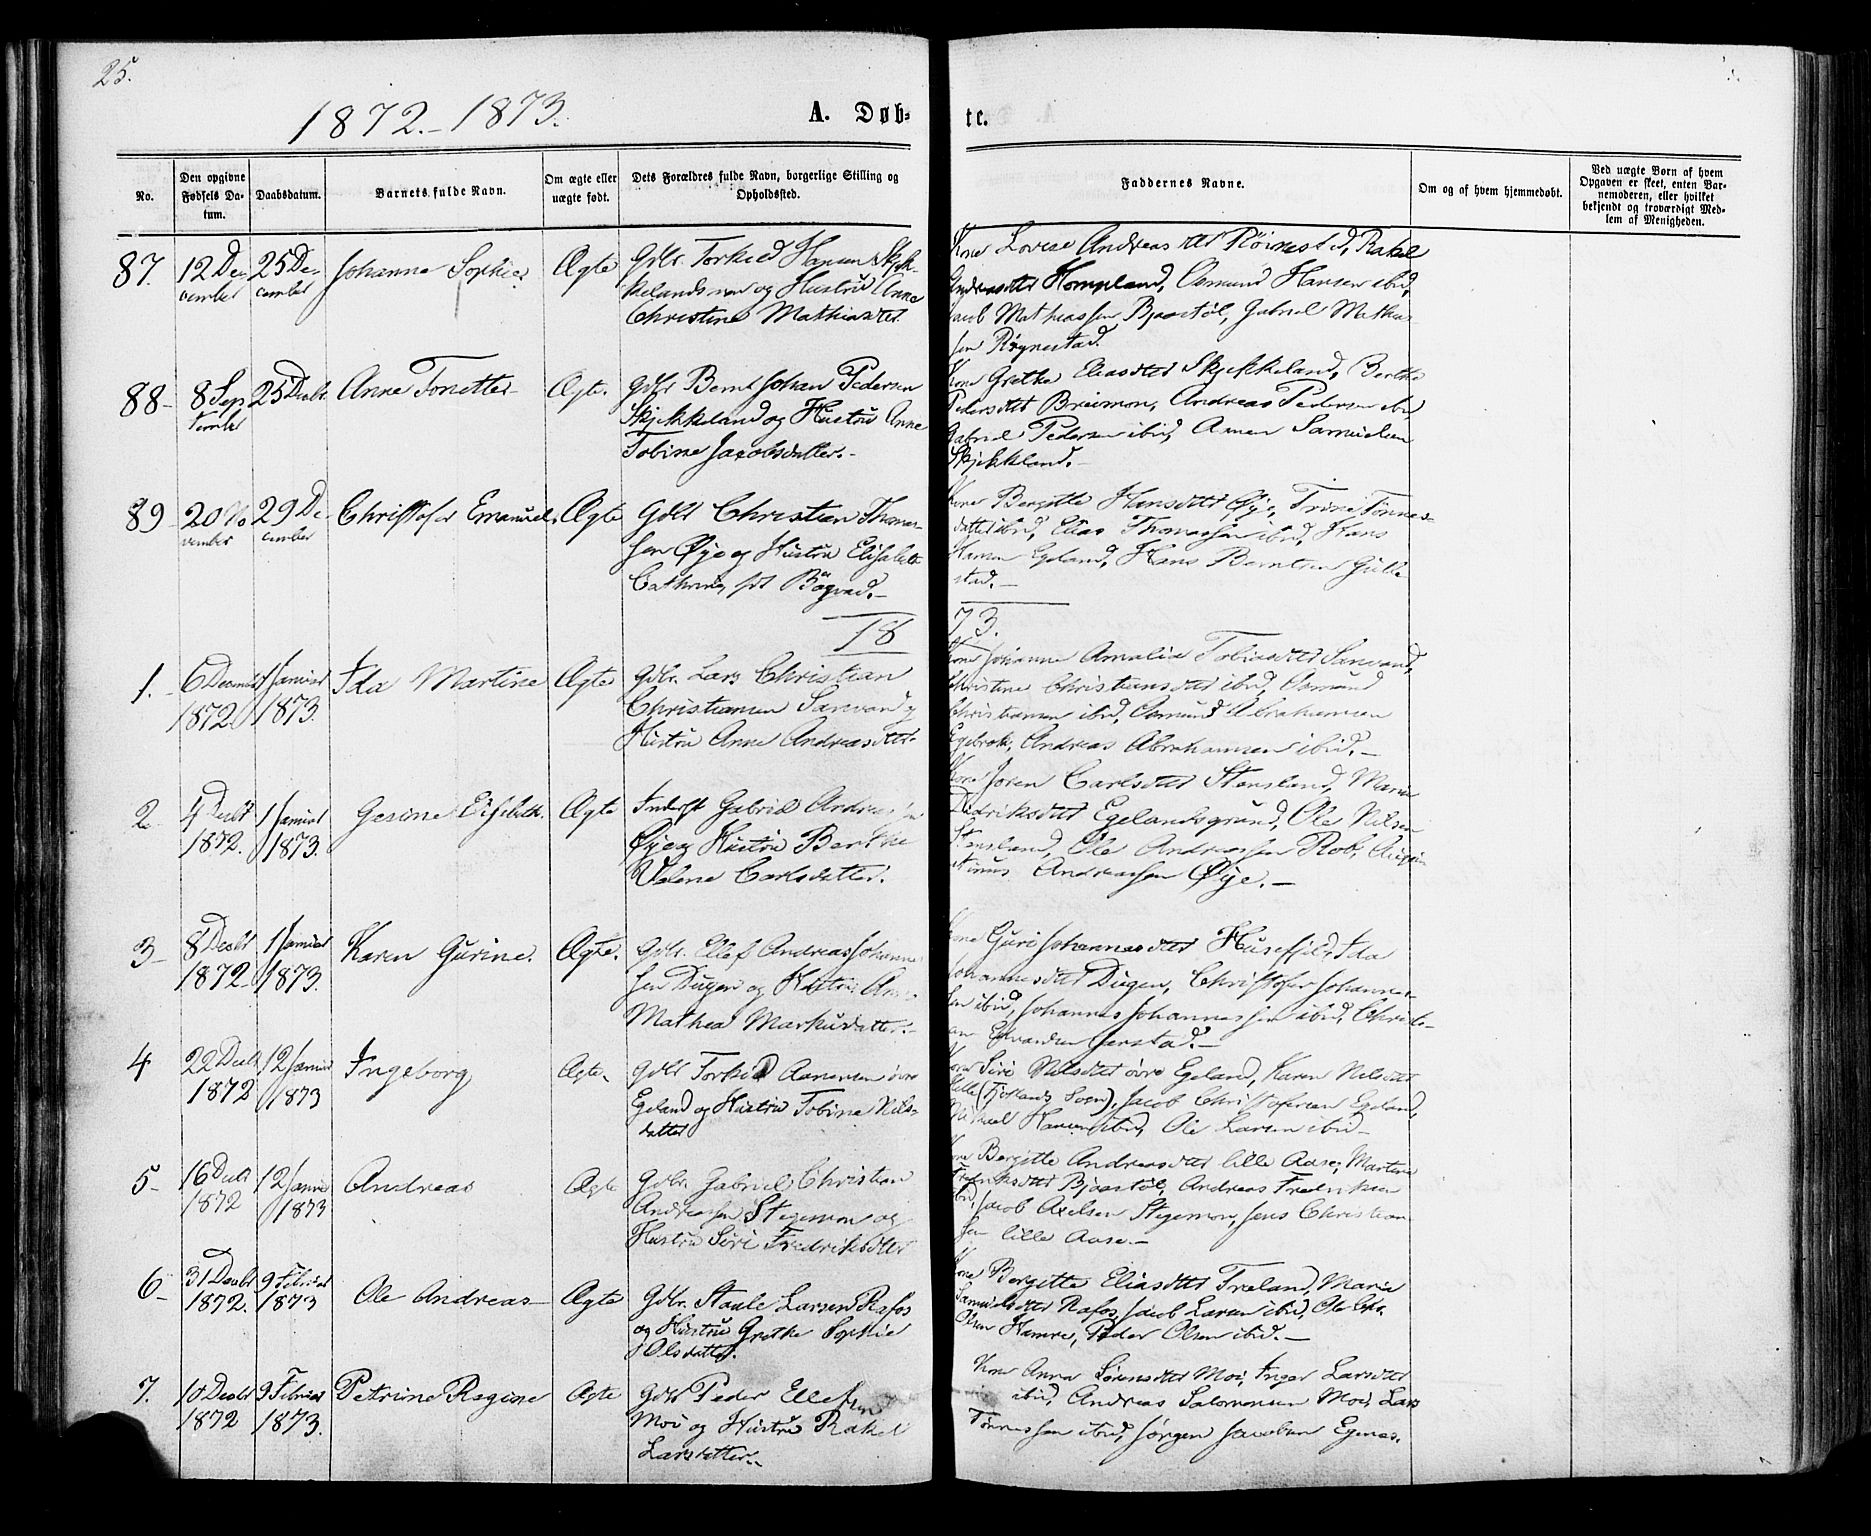 25.
1872.-1873.
A. Døb-
te.
No.
Den opgivne
Fødsels Da-
tum.
Daabsdatum.
Barnets fulde Navn.
Om ægte eller
uægte født.
Dets Forældres fulde Navn, borgerlige Stilling og
Opholdssted.
Faddernes Navne.
Om og af hvem hjemmedøbt.
Ved uægte Børn af hvem
Opgaven er skeet, enten Bar-
nemoderen, eller hvilket
bekjendt og troværdigt Med-
lem af Menigheden.
87. 12 De- 25 De- Johanne Sophie. Ægte Gdbr. Torkild Hansen Skjek-
cember cember
kelandsmo og Hustru Anne
Christine Mathiasdtr.
Kone Lovise Andreasdtr Røinestad, Rakel
Andreasdtr Hompland, Osmund Hansen ibid,
Jacob Mathiassen Bjoostøl, Gabriel Mathia-
sen Røynestad.
88- 8 Sep 25 Decbr. Anne Tonette- Ægte. Gdbr Bernt Johan Pedersen
tember
Skjekkeland og Hustru Anne
Tobine Jacobsdatter.-
Kone Grethe Eliasdtr Skjekkeland, Berthe
Pedersdtr Breimon, Andreas Pedersen ibid
Gabriel Pedersen ibid, Samuelsen
Skjekkland.-
89- 20 No 29 De Christofer Emanuel. Ægte Gdbr Christian Thomas-
vember cember
sen Øye og Hustru Elisabeth
Cathrine, fdt Bøgvad.-
Kone Bergitte Hansdtr Øye, Trine Tønnes-
datter ibid, Elias Thomassen ibid, Hans
Hansen Egeland, Hans Berntsen Gulle
stad.-
18
73.
1.- 6 Decembr 1 Januar Ida Martine Ægte Gdbr. Lars Christian
1872. 1873.
Christiansen Sanvand og
Hustru Anne Andreasdtr.
Kone Johanne Amalia Tobiasdtr Sanvand,
Christine Christiansdtr ibid, Osmund
Christiansen ibid, Osmund Abrahamsen
Egebrok, Andreas Abrahamsen ibid.-
2- 4 Decbr 1 Januar Gesine Elisabeth. Ægte Inderst Gabriel Andreassen
1872. 1873.
Øye og Hustru Berthe
Velene Carlsdatter.
Kone Joren Carlsdtr Stensland, Maren
Didriksdtr Egelandsgrund, Ole Nilsen
Stensland, Ole Andreassen Rob, Augu
stinus Andreassen Øye.-
3- 8 Decbr 1 Januar Karen Gurine. Ægte. Gdbr. Ellef Andreas Johannes-
1872- 1873.
sen Dugen og Hustru Anne
Mathea Markusdatter.-
Kone Guri Johannesdtr Husefjel, Ida
Johannesdtr Dugen, Christofer Johannes-
sen ibid, Johannes Johannessen ibid, Christi-
an Jerstad.-
4 22 Decbr 12 Januar Ingeborg Ægte. Gdbr Torkild Aanensen øvre
1872 1873
Egeland og Hustru Tobine Nils-
datter
Kone Siri Nilsdtr øvre Egeland, Karen Nilsdtr
Lille (Fjotlands Sogn), Jacob Christofersen Egeland,
Mikael Hansen ibid, Ole Larsen ibid-
5- 16 Decbr 12 Januar Andreas Ægte Gdbr. Gabriel Christian
1872 1873
Andreassen Stegemon og
Hustru Siri Fredriksdtr
Kone Bergitte Andreasdtr lille Aase, Martine
Fredriksdtr Bjoostøl, Andreas Fredriksen
ibid, Jacob Axelsen Stegemon, Jens Christian-
sen lille Aase.-
6- 31 Decbr 9 Februar Ole Andreas- Ægte Gdbr. Staale Larsen Rafos
1872. 1873
og Hustru Grethe Sophie
Olsdatter.
Kone Bergitte Eliasdtr Treland, Maria
Samuelsdtr Rafos, Jacob Larsen ibid, Ole Chr.
Olsen Hamre, Peder Olsen ibid.-
7. 10 Decbr 9 Februar Petrine Regine Ægte Gdbr Peder Ellefsen
1872 1873.
Moi og Hustru Rakel
Larsdatter.
Kone Anna Sørensdtr Moi, Inger Larsdtr
ibid, Andreas Salomonsen Moi, Lars
Tønnessen ibid, Jørgen Jacobsen Egenes.